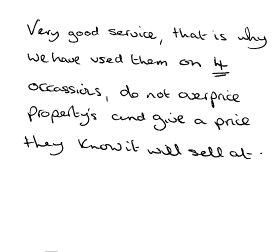 Very good service, that is why
we have used them on 4
occassions, do not overprice
property's and give a price
they know it will sell at.